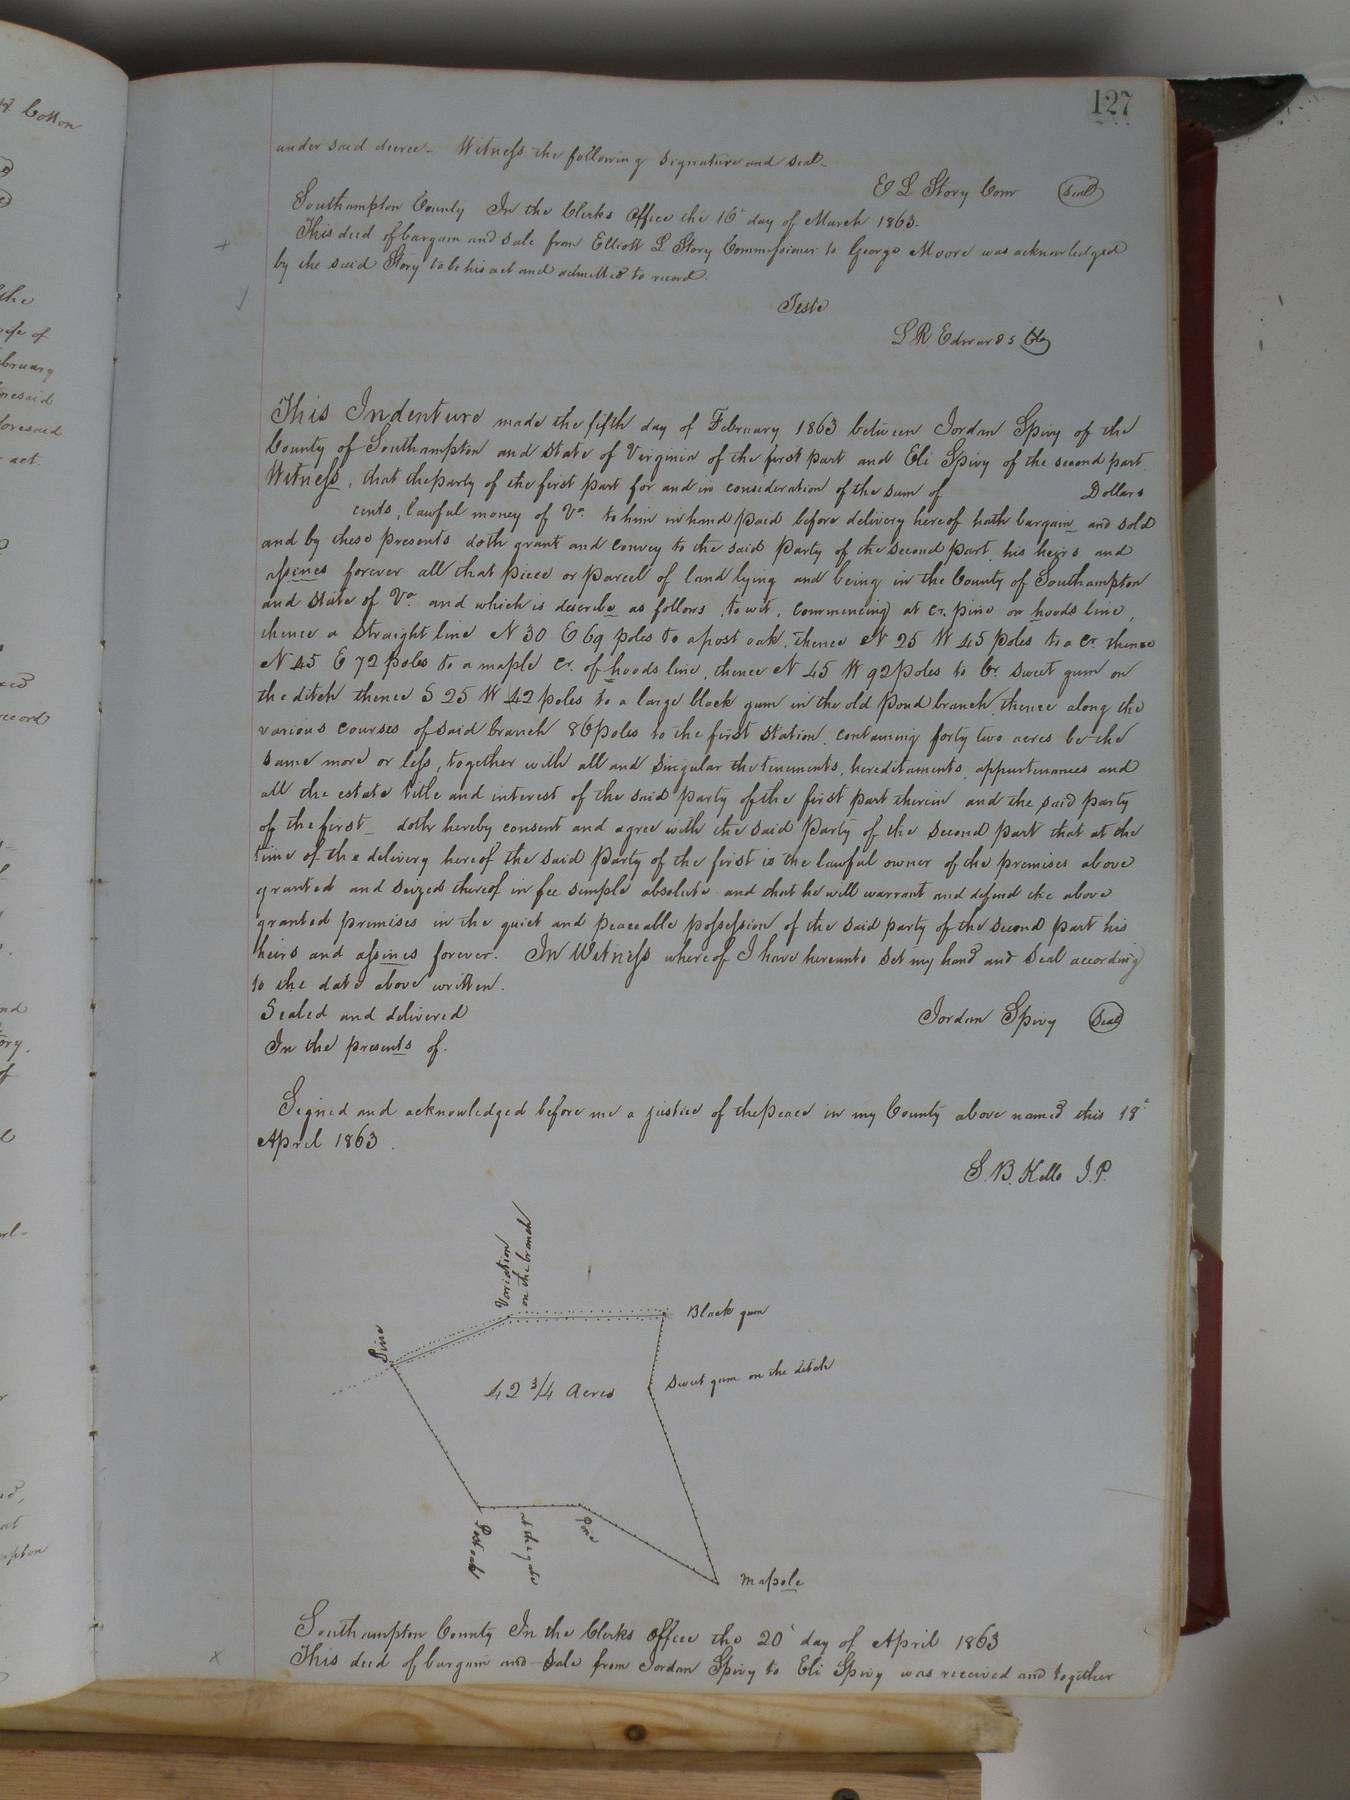 127
under said decree - Witness the following signature and seal -
E L Story Com Seal
Southampton County In the Clerks Office the 16 day of March 1863.
This deed of bargain and sale from Elliott L Story Commissioner to George Moore was acknowledged
by the said Story to be his act and admitted to record.
Teste
L R Edwards Clk
This Indenture made the fifth day of February 1863 between Jordan Spivy of the
County of Southampton and State of Virginia of the first part and Eli Spivy of the second part
Witness, that the party of the first part for and in consideration of the sum of Dollars
cents, lawful money of Va. to him in hand paid before delivery hereof hath bargain and sold
and by these presents doth grant and convey to the said Party of the second part his heirs and
assines forever all that piece or parcel of land lying and being in the County of Southampton
and State of Va. and which is describe as follows, to wit, commencing at cr. pine on hoods line,
thence a straight line N 30 E 69 poles to a post oak, thence N 25 W 45 poles to a cr. thence
N 45 E 72 poles to a maple cr. of hoods line, thence N 45 W 92 poles to cr. sweet gum on
the ditch thence S 25 W 42 poles to a large black gum in the old Pond branch, thence along the
various courses of said branch 86 poles to the first station, containing forty two acres be the
same more or less, together with all and singular the tenements, hereditaments, appurtenances and
all the estate title and interest of the said party of the first part therein and the said party
of the first doth hereby consent and agree with the said Party of the second part that at the
time of the delivery hereof the said Party of the first is the lawful owner of the premises above
granted and seized thereof in fee simple absolute and that he will warrant and defend the above
granted premises in the quiet and peaceable possession of the said party of the second part his
heirs and assines forever. In Witness whereof I have hereunto set my hand and seal according
to the date above written.
Sealed and delivered Jordan Spivy Seal
In the presents of.
Signed and acknowledged before me a justice of the peace in my County above named this 18
April 1863.
S. B. Kello J.P.
Variation
on the branch
Pine
Black gum
42 3/4 Acres
Sweet gum on the ditch
Post oak
at the gate
Pine
Mapole
Southampton County In the Clerks Office the 20 day of April 1863
This deed of bargain and sale from Jordan Spivy to Eli Spivy was received and together